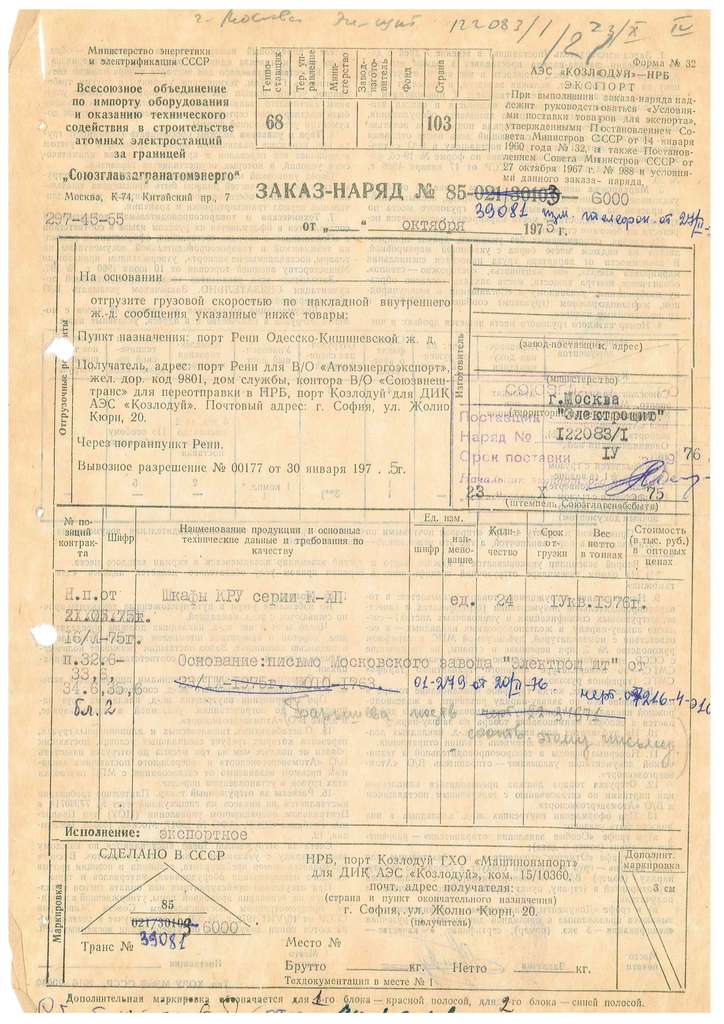 г. Москва 122083/1
Форма № 32
Министерство энергетики
и электрификации СССР
Всесоюзное объединение
по импорту оборудования
и оказанию технического
содействия в строительстве
атомных электростанций
за границей
„Союзглавзагранатомэнерго“
Москва, К-74, Китайский пр., 7
297-45-55
Генпоставщик
Тер. управление
Министерство
Завод-изготовитель
Фонд
Страна
68 103
АЭС «КОЗЛОДУЙ»—НРБ
ЭКСПОРТ
При выполнении заказа-наряда надлежит руководствоваться «Условиями поставки товаров для экспорта», утвержденными Постановлением Совета Министров СССР от 14 января 1960 года № 32, а также Постановлением Совета Министров СССР от 27 октября 1967 г. № 988 и условиями данного заказа-наряда.
ЗАКАЗ-НАРЯД № 85-021/30103 6000
39081 телефон. от 27/II
от „ “ октября 1975 г.
Отгрузочные реквизиты
На основании
отгрузите грузовой скоростью по накладной внутреннего
ж.-д. сообщения указанные ниже товары:
Пункт назначения: порт Рени Одесско-Кишиневской ж. д.
Получатель, адрес: порт Рени для В/О «Атомэнергоэкспорт»,
жел. дор. код 9801, дом службы, контора В/О «Союзвнеш-
транс» для переотправки в НРБ, порт Козлодуй для ДИК
АЭС «Козлодуй». Почтовый адрес: г. София, ул. Жолио
Кюри, 20.
Через погранпункт Рени.
Вывозное разрешение № 00177 от 30 января 197 . 5г.
Изготовитель
(завод-поставщик, адрес)
(министерство)
г.Москва
Поставщик "Электрощит"
Наряд № I22083/I
Срок поставки IУ 76
Начальник
23 X 75
(штемпель Союзглавснабсбыта)
№ позиций контракта
Шифр
Наименование продукции и основные
технические данные и требования по
качеству
Ед. изм.
шифр
наименование
Количество
Срок отгрузки
Вес нетто в тоннах
Стоимость (в тыс. руб.) в оптовых ценах
Н.п.от Шкафы КРУ серии К-ХП ед. 24 IУкв.1976г.
21.05.75г.
16/X-75г.
п.32.6- Основание:письмо Московского завода "Электрощит" от
33,6, 01-279 от 20/II-76.
34.6,35,6
бл. 2
соотв. этому письму
Исполнение: экспортное
Маркировка
СДЕЛАНО В СССР
85
021/30103 6000
Транс № 39081
НРБ, порт Козлодуй ГХО «Машиноимпорт»
для ДИК АЭС «Козлодуй», ком. 15/10360,
почт. адрес получателя:
(страна и пункт окончательного назначения)
г. София, ул. Жолио Кюри, 20.
(получатель)
Место №
Брутто кг. Нетто кг.
Техдокументация в месте № 1
Дополнит.
маркировка
3 см
Дополнительная маркировка обозначается для 1-го блока — красной полосой, для 2-го блока — синей полосой.